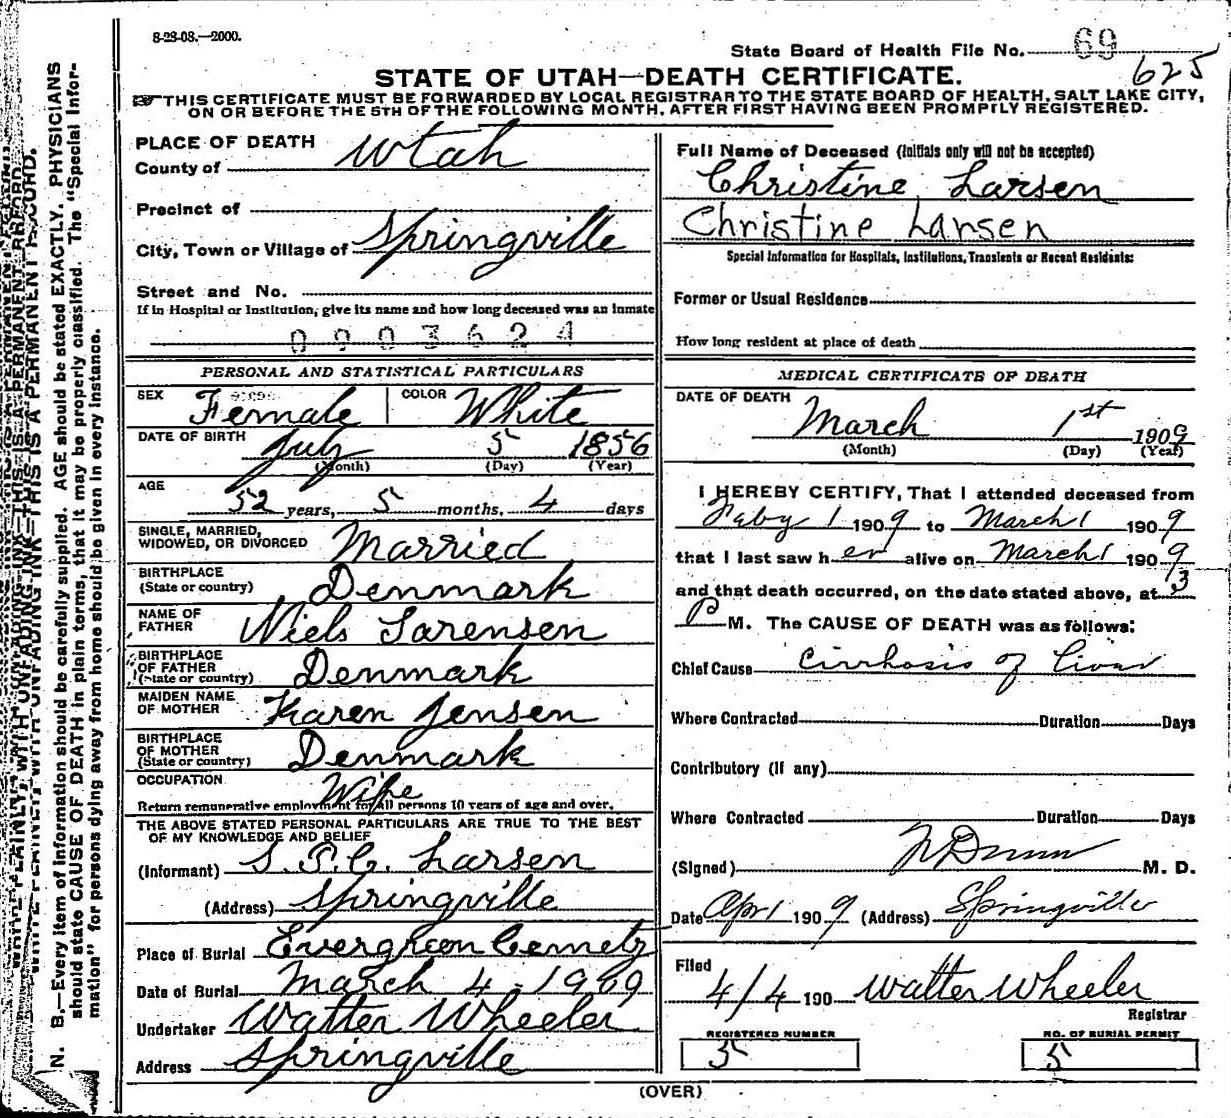 8-28-08.—2000.
State Board of Health File No. 69
625
STATE OF UTAH—DEATH CERTIFICATE.
THIS CERTIFICATE MUST BE FORWARDED BY LOCAL REGISTRAR TO THE STATE BOARD OF HEALTH, SALT LAKE CITY,
ON OR BEFORE THE 5TH OF THE FOLLOWING MONTH, AFTER FIRST HAVING BEEN PROMPTLY REGISTERED.
PLACE OF DEATH
County of Utah
Precinct of
City, Town or Village of Springville
Street and No.
If in Hospital or Institution, give its name and how long deceased was an inmate
0903624
PERSONAL AND STATISTICAL PARTICULARS
SEX Female COLOR White
DATE OF BIRTH July 5 1856
(Month) (Day) (Year)
AGE
52 years, 5 months, 4 days
SINGLE, MARRIED,
WIDOWED, OR DIVORCED Married
BIRTHPLACE
(State or country) Denmark
NAME OF
FATHER Niels Sorensen
BIRTHPLACE
OF FATHER
(State or country) Denmark
MAIDEN NAME
OF MOTHER Karen Jensen
BIRTHPLACE
OF MOTHER
(State or country) Denmark
OCCUPATION Wife
Return remunerative employment for all persons 10 years of age and over.
THE ABOVE STATED PERSONAL PARTICULARS ARE TRUE TO THE BEST
OF MY KNOWLEDGE AND BELIEF
(Informant) S. P. C. Larsen
(Address) Springville
Place of Burial Evergreen Cemetz
Date of Burial March 4 - 1909
Undertaker Walter Wheeler
Address Springville
Full Name of Deceased (Initials only will not be accepted)
Christine Larsen
Christine Larsen
Special Information for Hospitals, Institutions, Transients or Recent Residents:
Former or Usual Residence
How long resident at place of death
MEDICAL CERTIFICATE OF DEATH
DATE OF DEATH
March 1st 1909
(Month) (Day) (Year)
I HEREBY CERTIFY, That I attended deceased from
Feby 1 1909 to March 1 1909
that I last saw her alive on March 1 1909
and that death occurred, on the date stated above, at 3
P M. The CAUSE OF DEATH was as follows:
Chief Cause Cirrhosis of Liver
Where Contracted Duration Days
Contributory (if any)
Where Contracted Duration Days
(Signed) M. D.
Date Apr 1 1909 (Address) Springville
Filed
4/4 190 Walter Wheeler
Registrar
REGISTERED NUMBER NO. OF BURIAL PERMIT
5 5
(OVER)
WRITE PLAINLY WITH UNFADING INK—THIS IS A PERMANENT RECORD.
N. B.—Every item of information should be carefully supplied. AGE should be stated EXACTLY. PHYSICIANS
should state CAUSE OF DEATH in plain terms, that it may be properly classified. The "Special Infor-
mation" for persons dying away from home should be given in every instance.